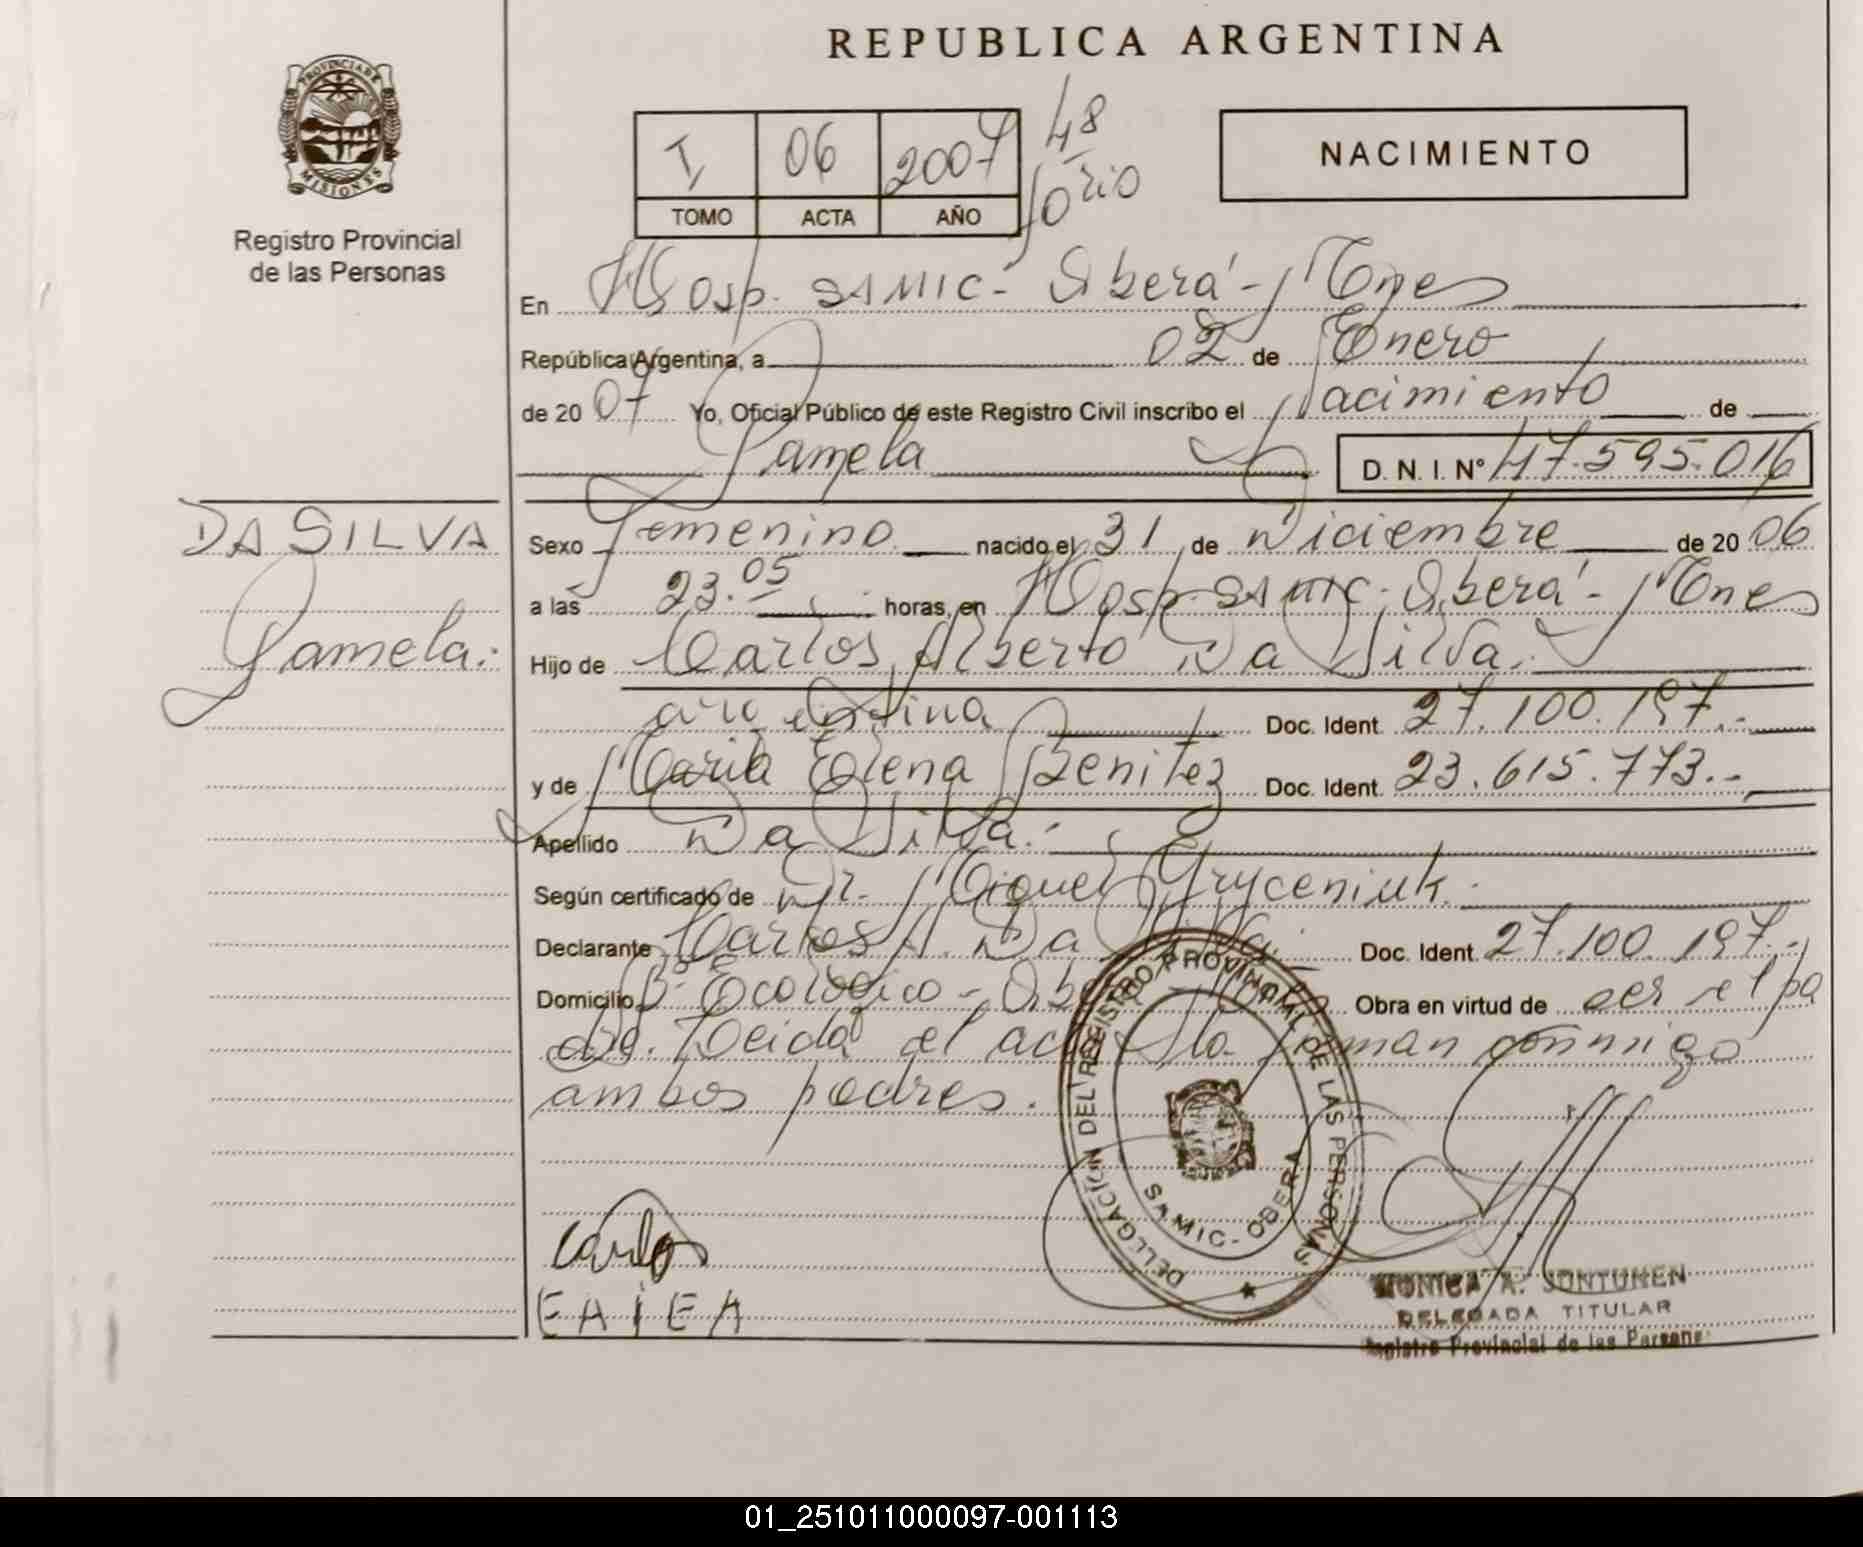 REPUBLICA ARGENTINA
PROVINCIA DE MISIONES
Registro Provincial
de las Personas
I 06 2007 48
TOMO ACTA AÑO
NACIMIENTO
En Hosp. SAMIC - Oberá - Mnes
República Argentina, a 02 de Enero
de 2007 Yo, Oficial Público de este Registro Civil inscribo el Nacimiento de
Pamela D. N. I. Nº 47.595.016
DA SILVA
Pamela.
Sexo Femenino nacido el 31 de Diciembre de 2006
a las 23.05 horas, en Hosp. SAMIC - Oberá - Mnes
Hijo de Carlos Alberto Da Silva.
argentina Doc. Ident. 27.100.197.-
y de María Elena Benitez Doc. Ident. 23.615.773.-
Apellido Da Silva.-
Según certificado de Dr. Miguel Gryceniuk.
Declarante Carlos A. Da Silva Doc. Ident. 27.100.197.-
Domicilio Bº Ecológico - Oberá - Mnes Obra en virtud de ser el pa
dre. Leída el acta la firman conmigo
ambos padres.
DELEGACIÓN DEL REGISTRO PROVINCIAL DE LAS PERSONAS
SAMIC - OBERA
Carlos
MONICA A. SONTUNEN
DELEGADA TITULAR
Registro Provincial de las Personas
01_251011000097-001113